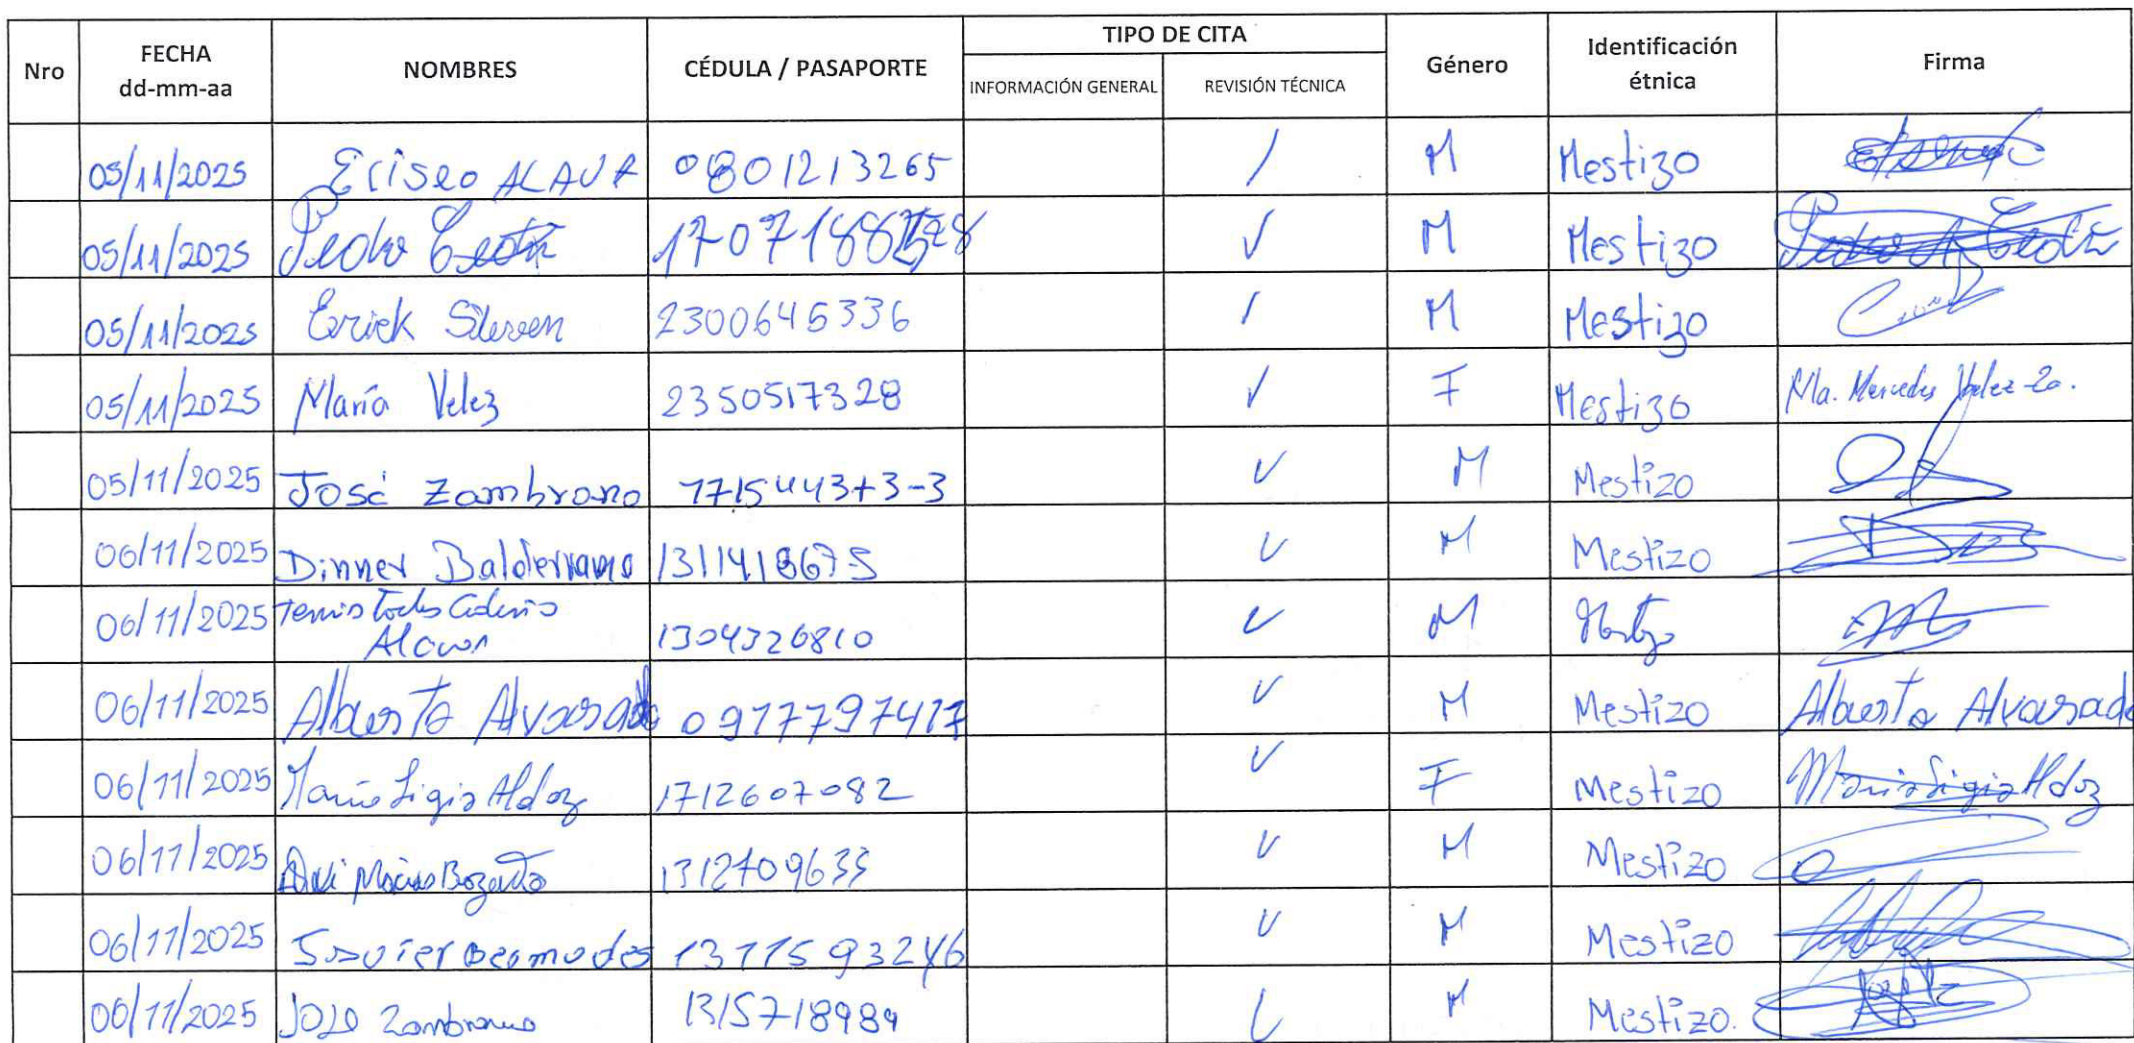 Nro FECHA dd-mm-aa NOMBRES CÉDULA / PASAPORTE TIPO DE CITA INFORMACIÓN GENERAL REVISIÓN TÉCNICA Género Identificación étnica Firma
05/11/2025 Eliseo ALAVA 0801213265 / M Mestizo
05/11/2025 Pedro M Mestizo Pedro
05/11/2025 Erick Steven 2300645336 / M Mestizo
05/11/2025 María Velez 2350517328 ✓ F Mestizo Ma. Mercedes Velez
05/11/2025 José Zambrano 171544373-3 ✓ M Mestizo
06/11/2025 Dinner Balderramo 1311418675 ✓ M Mestizo
06/11/2025 1304326810 ✓ M Mestizo
06/11/2025 Alberto Alvarado 0917797417 ✓ M Mestizo Alberto Alvarado
06/11/2025 María Ligia Aldaz 1712607082 ✓ F Mestizo María Ligia Aldaz
06/11/2025 Macias 1312709635 ✓ M Mestizo
06/11/2025 Javier Bermudes ✓ M Mestizo
06/11/2025 Zambrano 1315718989 ✓ M Mestizo.